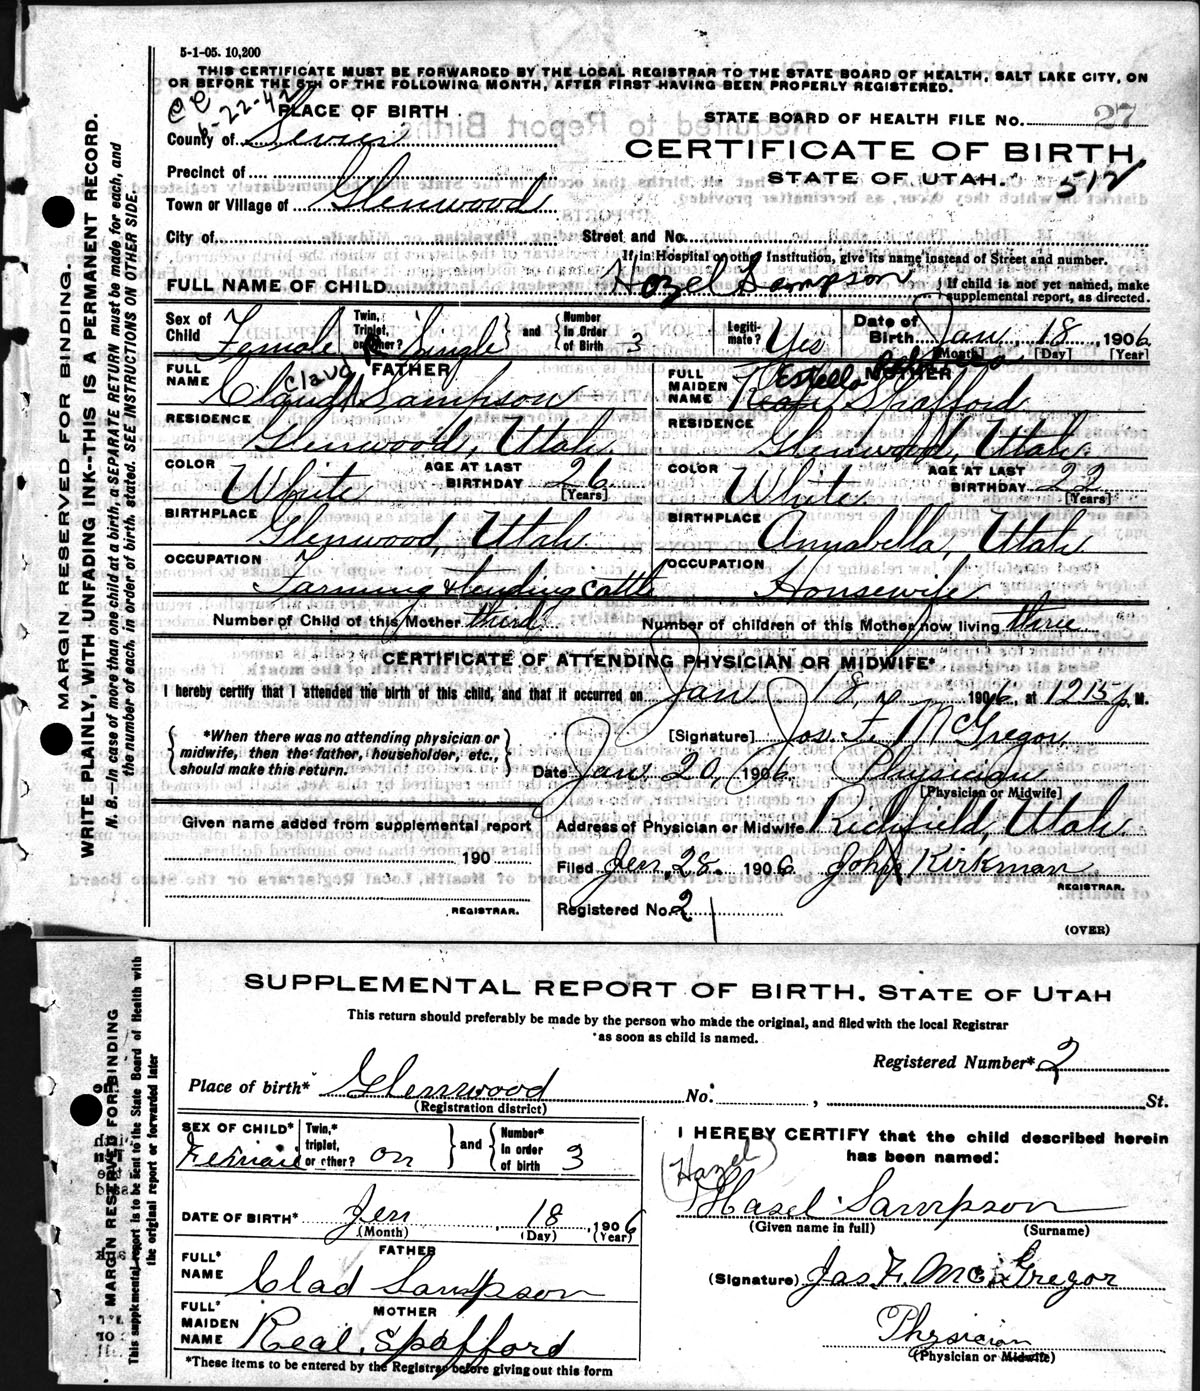 5-1-05. 10,200
THIS CERTIFICATE MUST BE FORWARDED BY THE LOCAL REGISTRAR TO THE STATE BOARD OF HEALTH, SALT LAKE CITY, ON
OR BEFORE THE 5TH OF THE FOLLOWING MONTH, AFTER FIRST HAVING BEEN PROPERLY REGISTERED.
6-22-42
PLACE OF BIRTH
STATE BOARD OF HEALTH FILE NO. 27
County of Sevier
CERTIFICATE OF BIRTH
Precinct of
STATE OF UTAH. 512
Town or Village of Glenwood
City of Street and No.
If in Hospital or other Institution, give its name instead of Street and number.
FULL NAME OF CHILD Hazel Sampson { If child is not yet named, make
supplemental report, as directed.
Sex of Child Female Twin, Triplet, or other? Single } and { Number in Order of Birth 3 Legiti-mate? Yes Date of Birth Jan 18 1906
[Month] [Day] [Year]
FATHER MOTHER
FULL NAME Claud Claude Sampson
FULL MAIDEN NAME Estella Spafford
RESIDENCE Glenwood, Utah RESIDENCE Glenwood, Utah
COLOR White AGE AT LAST BIRTHDAY 26 [Years] COLOR White AGE AT LAST BIRTHDAY 22 [Years]
BIRTHPLACE Glenwood, Utah BIRTHPLACE Annabella, Utah
OCCUPATION Farming & tending cattle OCCUPATION Housewife
Number of Child of this Mother third Number of children of this Mother now living three
CERTIFICATE OF ATTENDING PHYSICIAN OR MIDWIFE*
I hereby certify that I attended the birth of this child, and that it occurred on Jan 18, 1906, at 12 15 p. M.
{ *When there was no attending physician or midwife, then the father, householder, etc., should make this return. }
[Signature] Jos. F. McGregor
Date Jan 20, 1906 Physician
[Physician or Midwife]
Given name added from supplemental report
Address of Physician or Midwife Richfield, Utah
190
Filed Jan, 28. 1906 John Kirkman
REGISTRAR.
REGISTRAR.
Registered No. 2
(OVER)
MARGIN RESERVED FOR BINDING.
WRITE PLAINLY, WITH UNFADING INK--THIS IS A PERMANENT RECORD.
N. B.—In case of more than one child at a birth, a SEPARATE RETURN must be made for each, and
the number of each, in order of birth, stated. SEE INSTRUCTIONS ON OTHER SIDE.
SUPPLEMENTAL REPORT OF BIRTH. STATE OF UTAH
This return should preferably be made by the person who made the original, and filed with the local Registrar
as soon as child is named.
Registered Number* 2
Place of birth* Glenwood No. , St.
(Registration district)
SEX OF CHILD* Female Twin,* triplet, or other? on } and { Number* in order of birth 3
I HEREBY CERTIFY that the child described herein
has been named:
(Hazel)
Hasel Sampson
(Given name in full) (Surname)
DATE OF BIRTH* Jen, 18, 1906
(Month) (Day) (Year)
FATHER
FULL* NAME Clad Sampson
(Signature) Jas. F. McGregor
MOTHER
FULL* MAIDEN NAME Real. Spafford
Physician
(Physician or Midwife)
*These items to be entered by the Registrar before giving out this form
MARGIN RESERVED FOR BINDING
This supplemental report is to be sent to the State Board of Health with
the original report or forwarded later